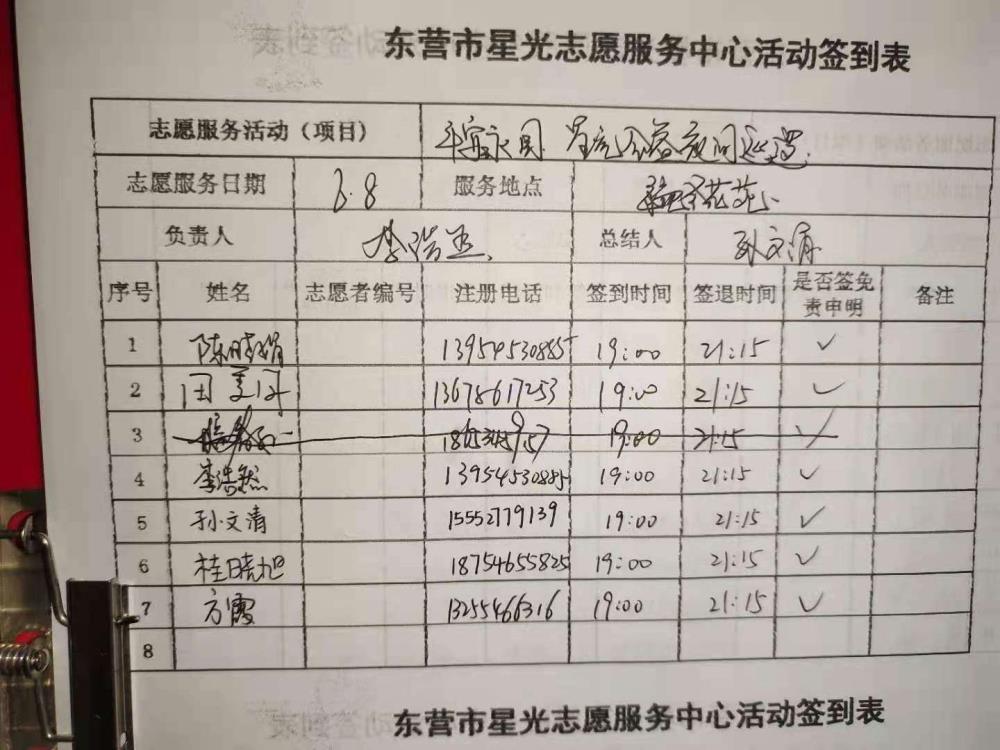 东营市星光志愿服务中心活动签到表
志愿服务活动（项目） 平安家园 星光公益夜间巡逻
志愿服务日期 6.8 服务地点 花苑
负责人 李浩 总结人 孙文清
序号 姓名 志愿者编号 注册电话 签到时间 签退时间 是否签免责申明 备注
1 陈晓娟 13954530885 19:00 21:15 ✓
2 13678617253 19:00 21:15 ✓
3 19:00 21:15 ✓
4 李浩然 13954530885 19:00 21:15 ✓
5 孙文清 15552779139 19:00 21:15 ✓
6 桂晓旭 18754655825 19:00 21:15 ✓
7 方霞 13255466316 19:00 21:15 ✓
8
东营市星光志愿服务中心活动签到表